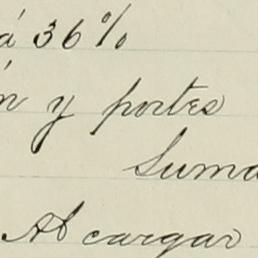 á 36%
n y portes
Suma
Al cargar